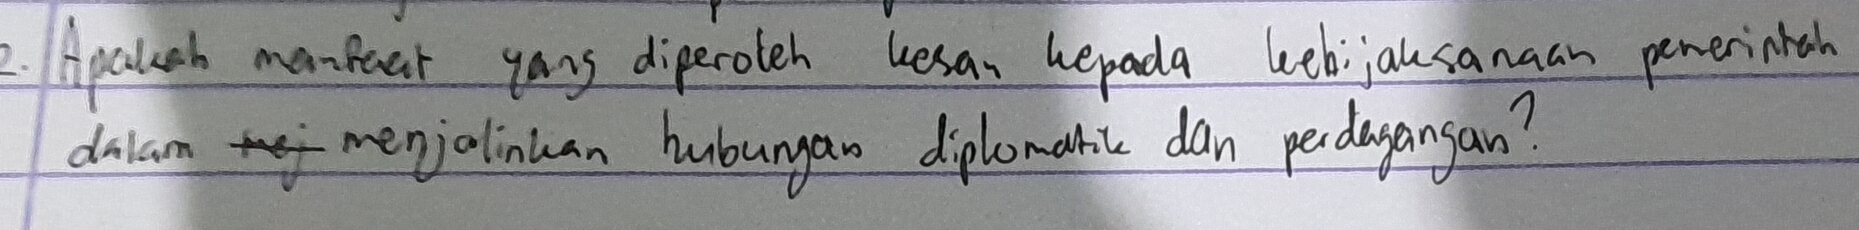 2. Apakah manfaat yang diperoleh kesan kepada kebijaksanaan pemerintah
dalam menjalinkan hubungan diplomatik dan perdagangan?